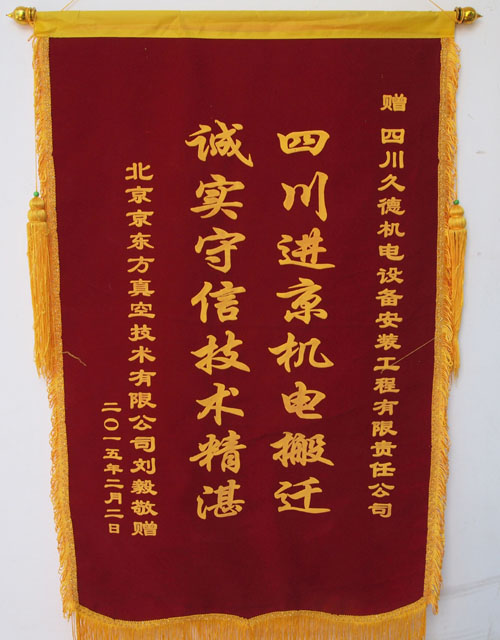 赠 四川久德机电设备安装工程有限责任公司
四川进京机电搬迁
诚实守信技术精湛
北京京东方真空技术有限公司刘毅敬赠
二〇一五年二月二日